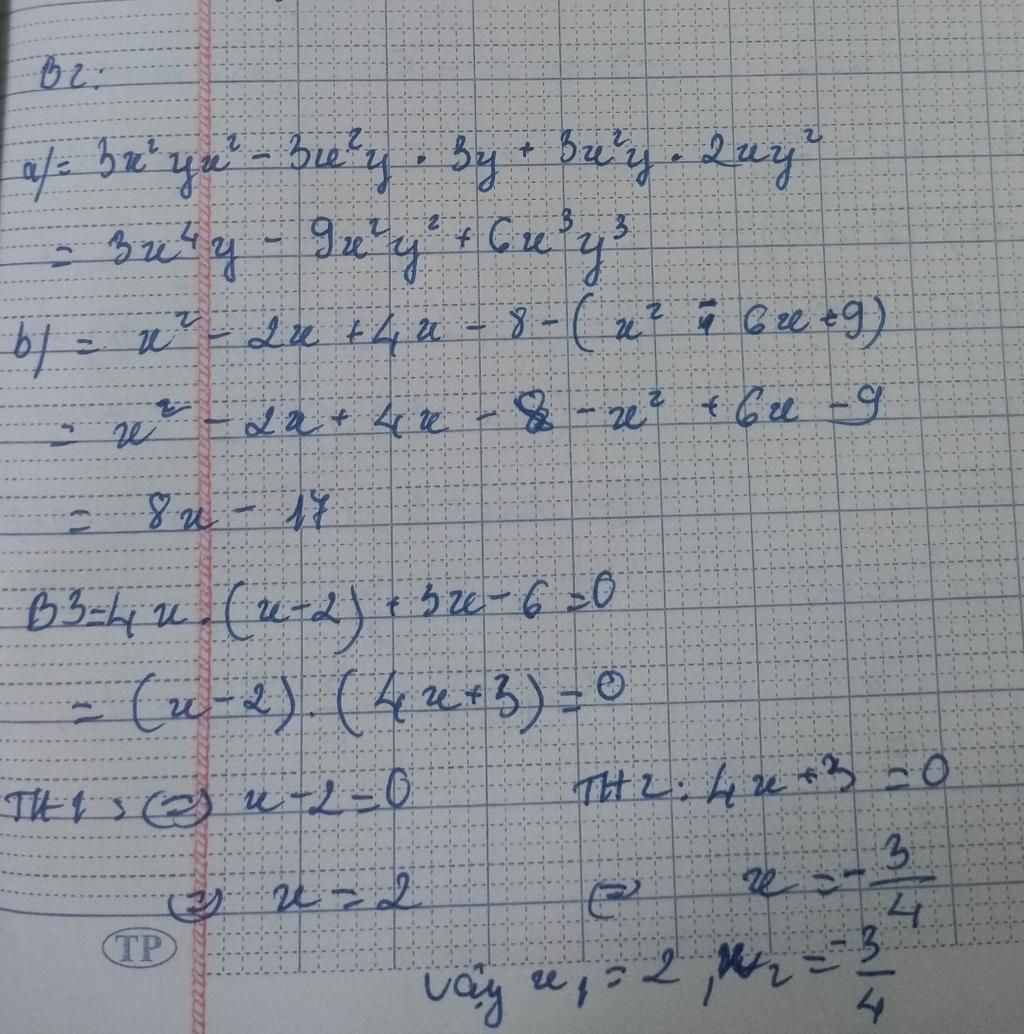 B2:
a/ = 3x²yx² - 3x²y . 3y + 3x²y . 2xy²
= 3x⁴y - 9x²y² + 6x³y³
b/ = x² - 2x + 4x - 8 - (x² - 6x + 9)
= x² - 2x + 4x - 8 - x² + 6x - 9
= 8x - 17
B3 = 4x . (x - 2) + 3x - 6 = 0
= (x - 2) . (4x + 3) = 0
TH1 : (=) x - 2 = 0 TH2 : 4x + 3 = 0
(=) x = 2 (=) x = -3/4
TP
vậy x₁ = 2 , x₂ = -3/4